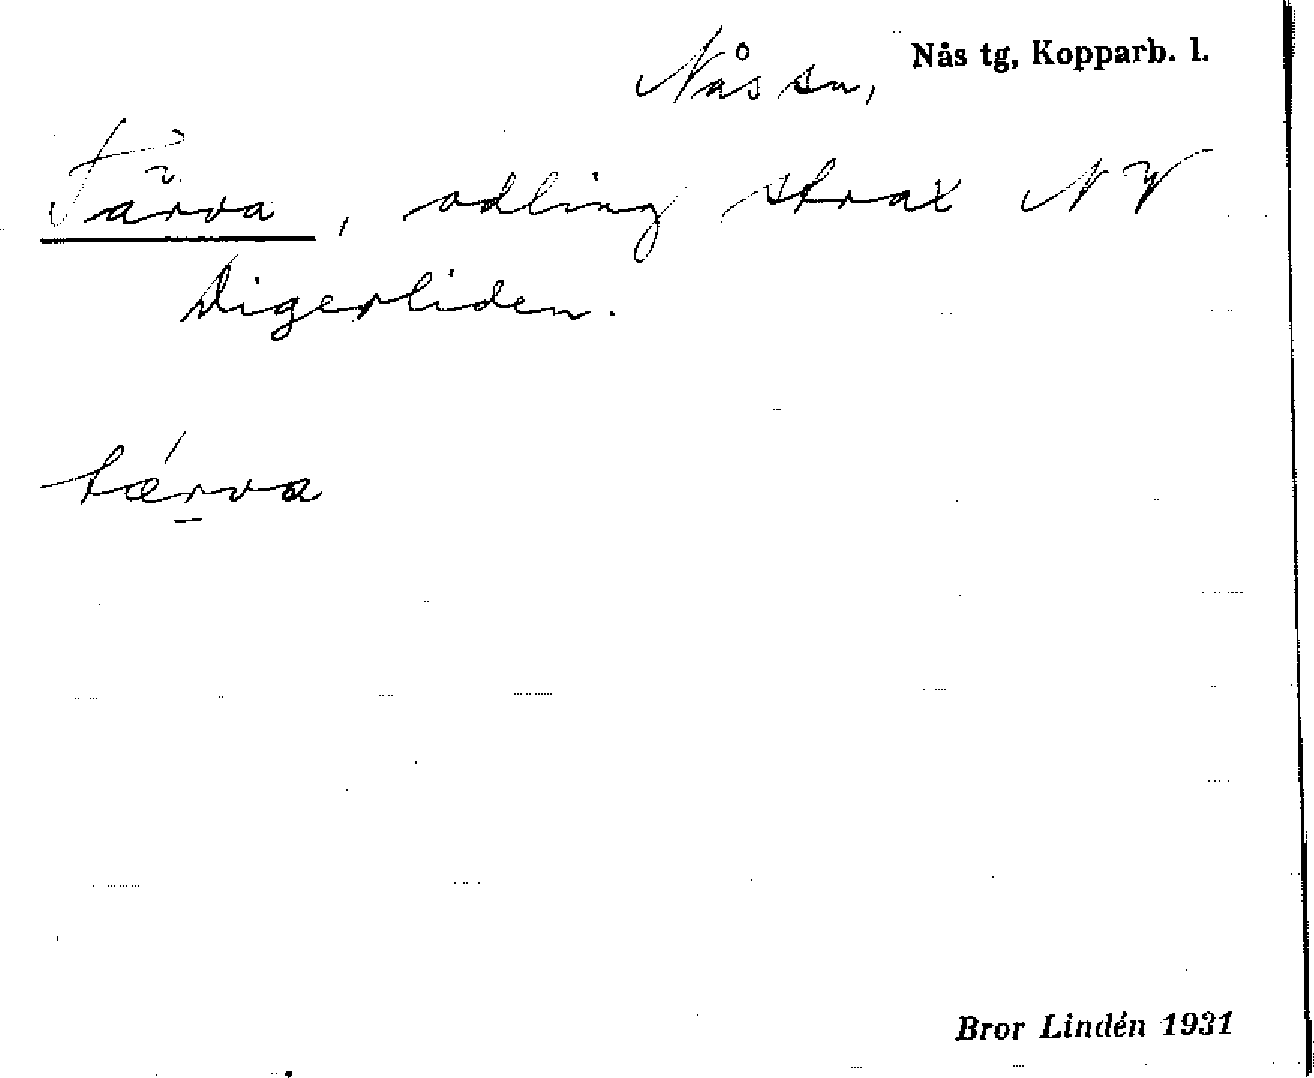 Nås sn, Nås tg, Kopparb. l.
Tärva, odling strax NV
Digerliden.
tǽrva
Bror Lindén 1931